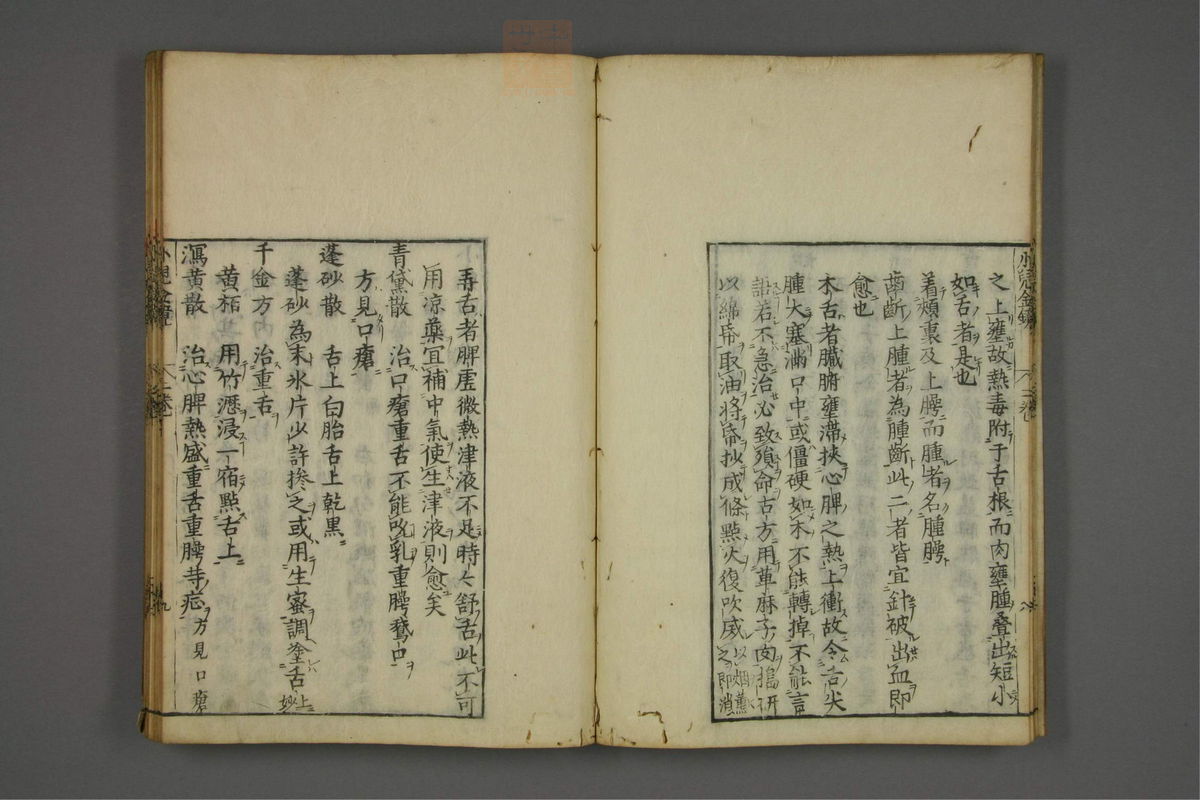 之上壅故熱毒附于舌根而肉壅腫叠出短小
如舌者是也
着頰裏及上腭而腫者名腫腭
齒齗上腫者為腫齗此二者皆宜針破出血即
愈也
木舌者臟腑壅滯挾心脾之熱上衝故令舌尖
腫大塞滿口中或僵硬如木不能轉掉不能言
語若不急治必致殞命古方用萆麻子肉搗研
以綿帋取油將帋抄成條點火復吹威之以烟薰即消
再舌者脾虚微熱津液不足時々舒舌此不可
用凉藥宜補中氣使生津液則愈矣
青黛散 治口瘡重舌不能吮乳重腭鵞口
方見口瘡
蓬砂散 舌上白胎舌上乾黒
蓬砂為末氷片少許摻之或用生蜜調塗舌上妙
千金方 治重舌
黄栢 用竹瀝浸一宿點舌上
瀉黄散 治心脾熱盛重舌重腭等症方見口瘡